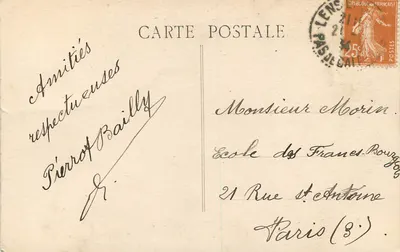 CARTE POSTALE
LENS
PAS DE CALAIS
25c
Amitiés
respectueuses
Pierrot Bailly
Monsieur Morin
Ecole des Francs-Bourgeois
21 Rue St Antoine
Paris (3).